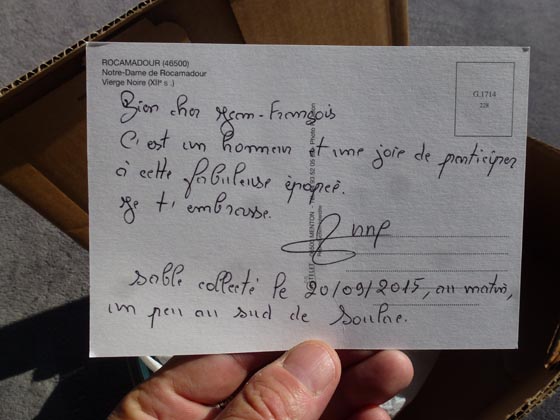 ROCAMADOUR (46500)
Notre-Dame de Rocamadour
Vierge Noire (XIIe s.)
G.1714
228
Bien cher Jean-François
C'est un honneur et une joie de participer
à cette fabuleuse épopée.
Je t'embrasse.
Anne
MENTON
Photo
sable collecté le 20/09/2015, au matin,
un peu au sud de Soulac.